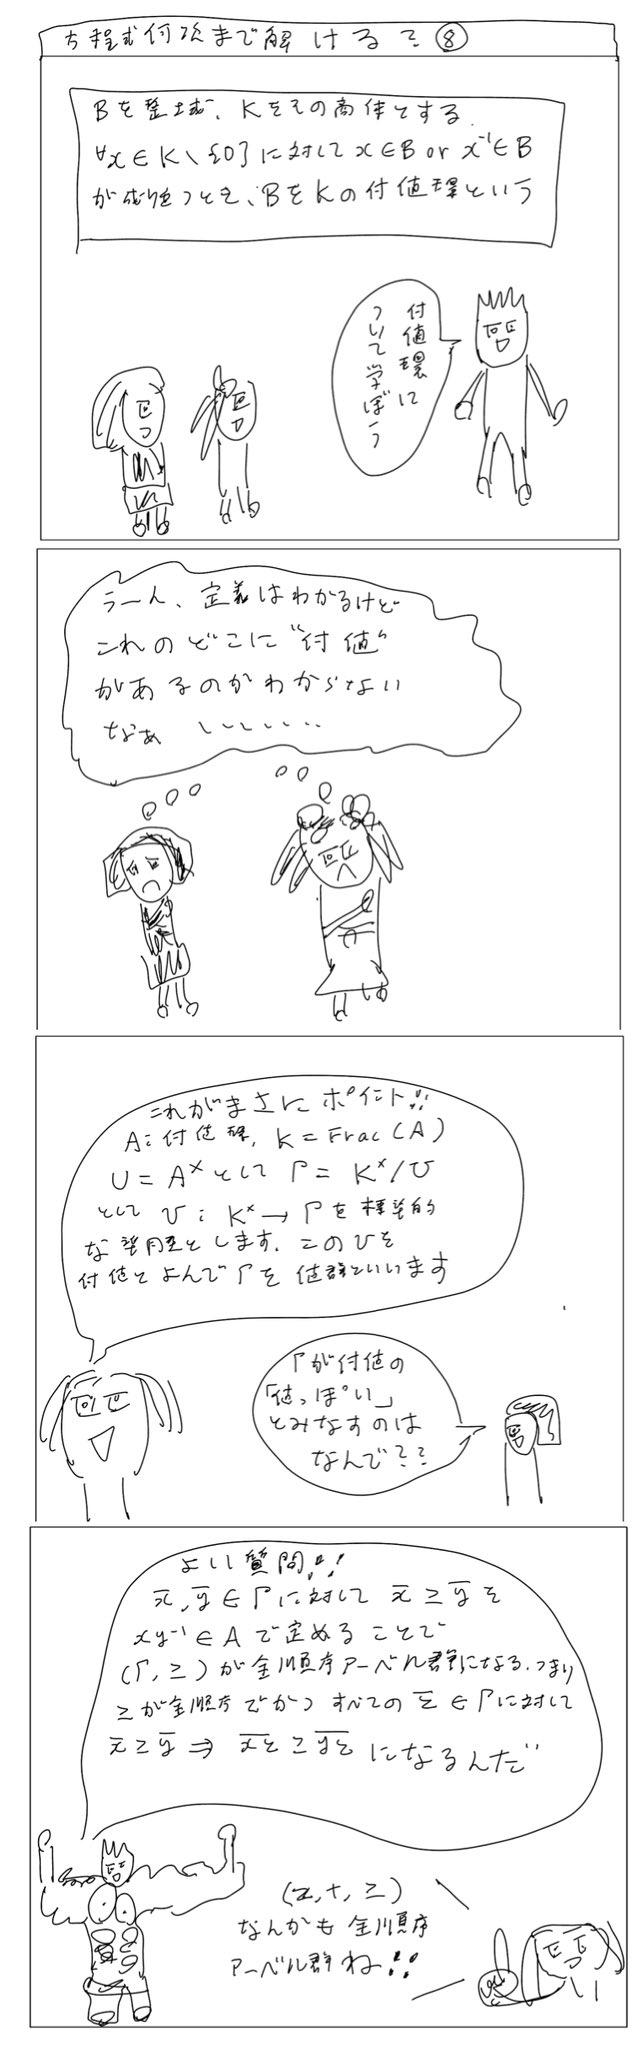 方程式何次まで解けるこ⑧
Bを整域、Kをその商体とする.
∀x∈K\{0}に対してx∈B or x⁻¹∈B
が成り立つとき、BをKの付値環という
付値環に
ついて学ぼう
うーん、定義はわかるけど
これのどこに"付値"
があるのかわからない
なぁ
これがまさにポイント!!
A:付値環, K=Frac(A)
U=A^×として Γ=K^×/U
として υ:K^×→Γを標準的
な準同型とします. このυを
付値とよんでΓを値群といいます
Γが付値の
「値っぽい」
とみなすのは
なんで??
よい質問!!
x̄,ȳ∈Γに対して x̄≥ȳを
xy⁻¹∈Aで定めることで
(Γ,≥)が全順序アーベル群になる.つまり
≥が全順序でかつすべてのz̄∈Γに対して
x̄≥ȳ⇒x̄z̄≥ȳz̄になるんだ
(ℤ,+,≥)
なんかも全順序
アーベル群ね!!